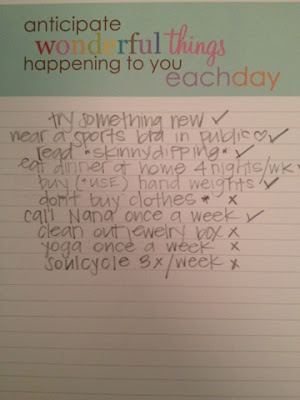 anticipate
wonderful things
happening to you
eachday
try something new ✓
wear a sports bra in public ♡ ✓
read *skinnydipping* ✓
eat dinner at home 4 nights/wk ✓
buy (+USE) hand weights ✓
don't buy clothes * x
call Nana once a week ✓
clean out jewelry box x
yoga once a week x
soulcycle 3x/week x